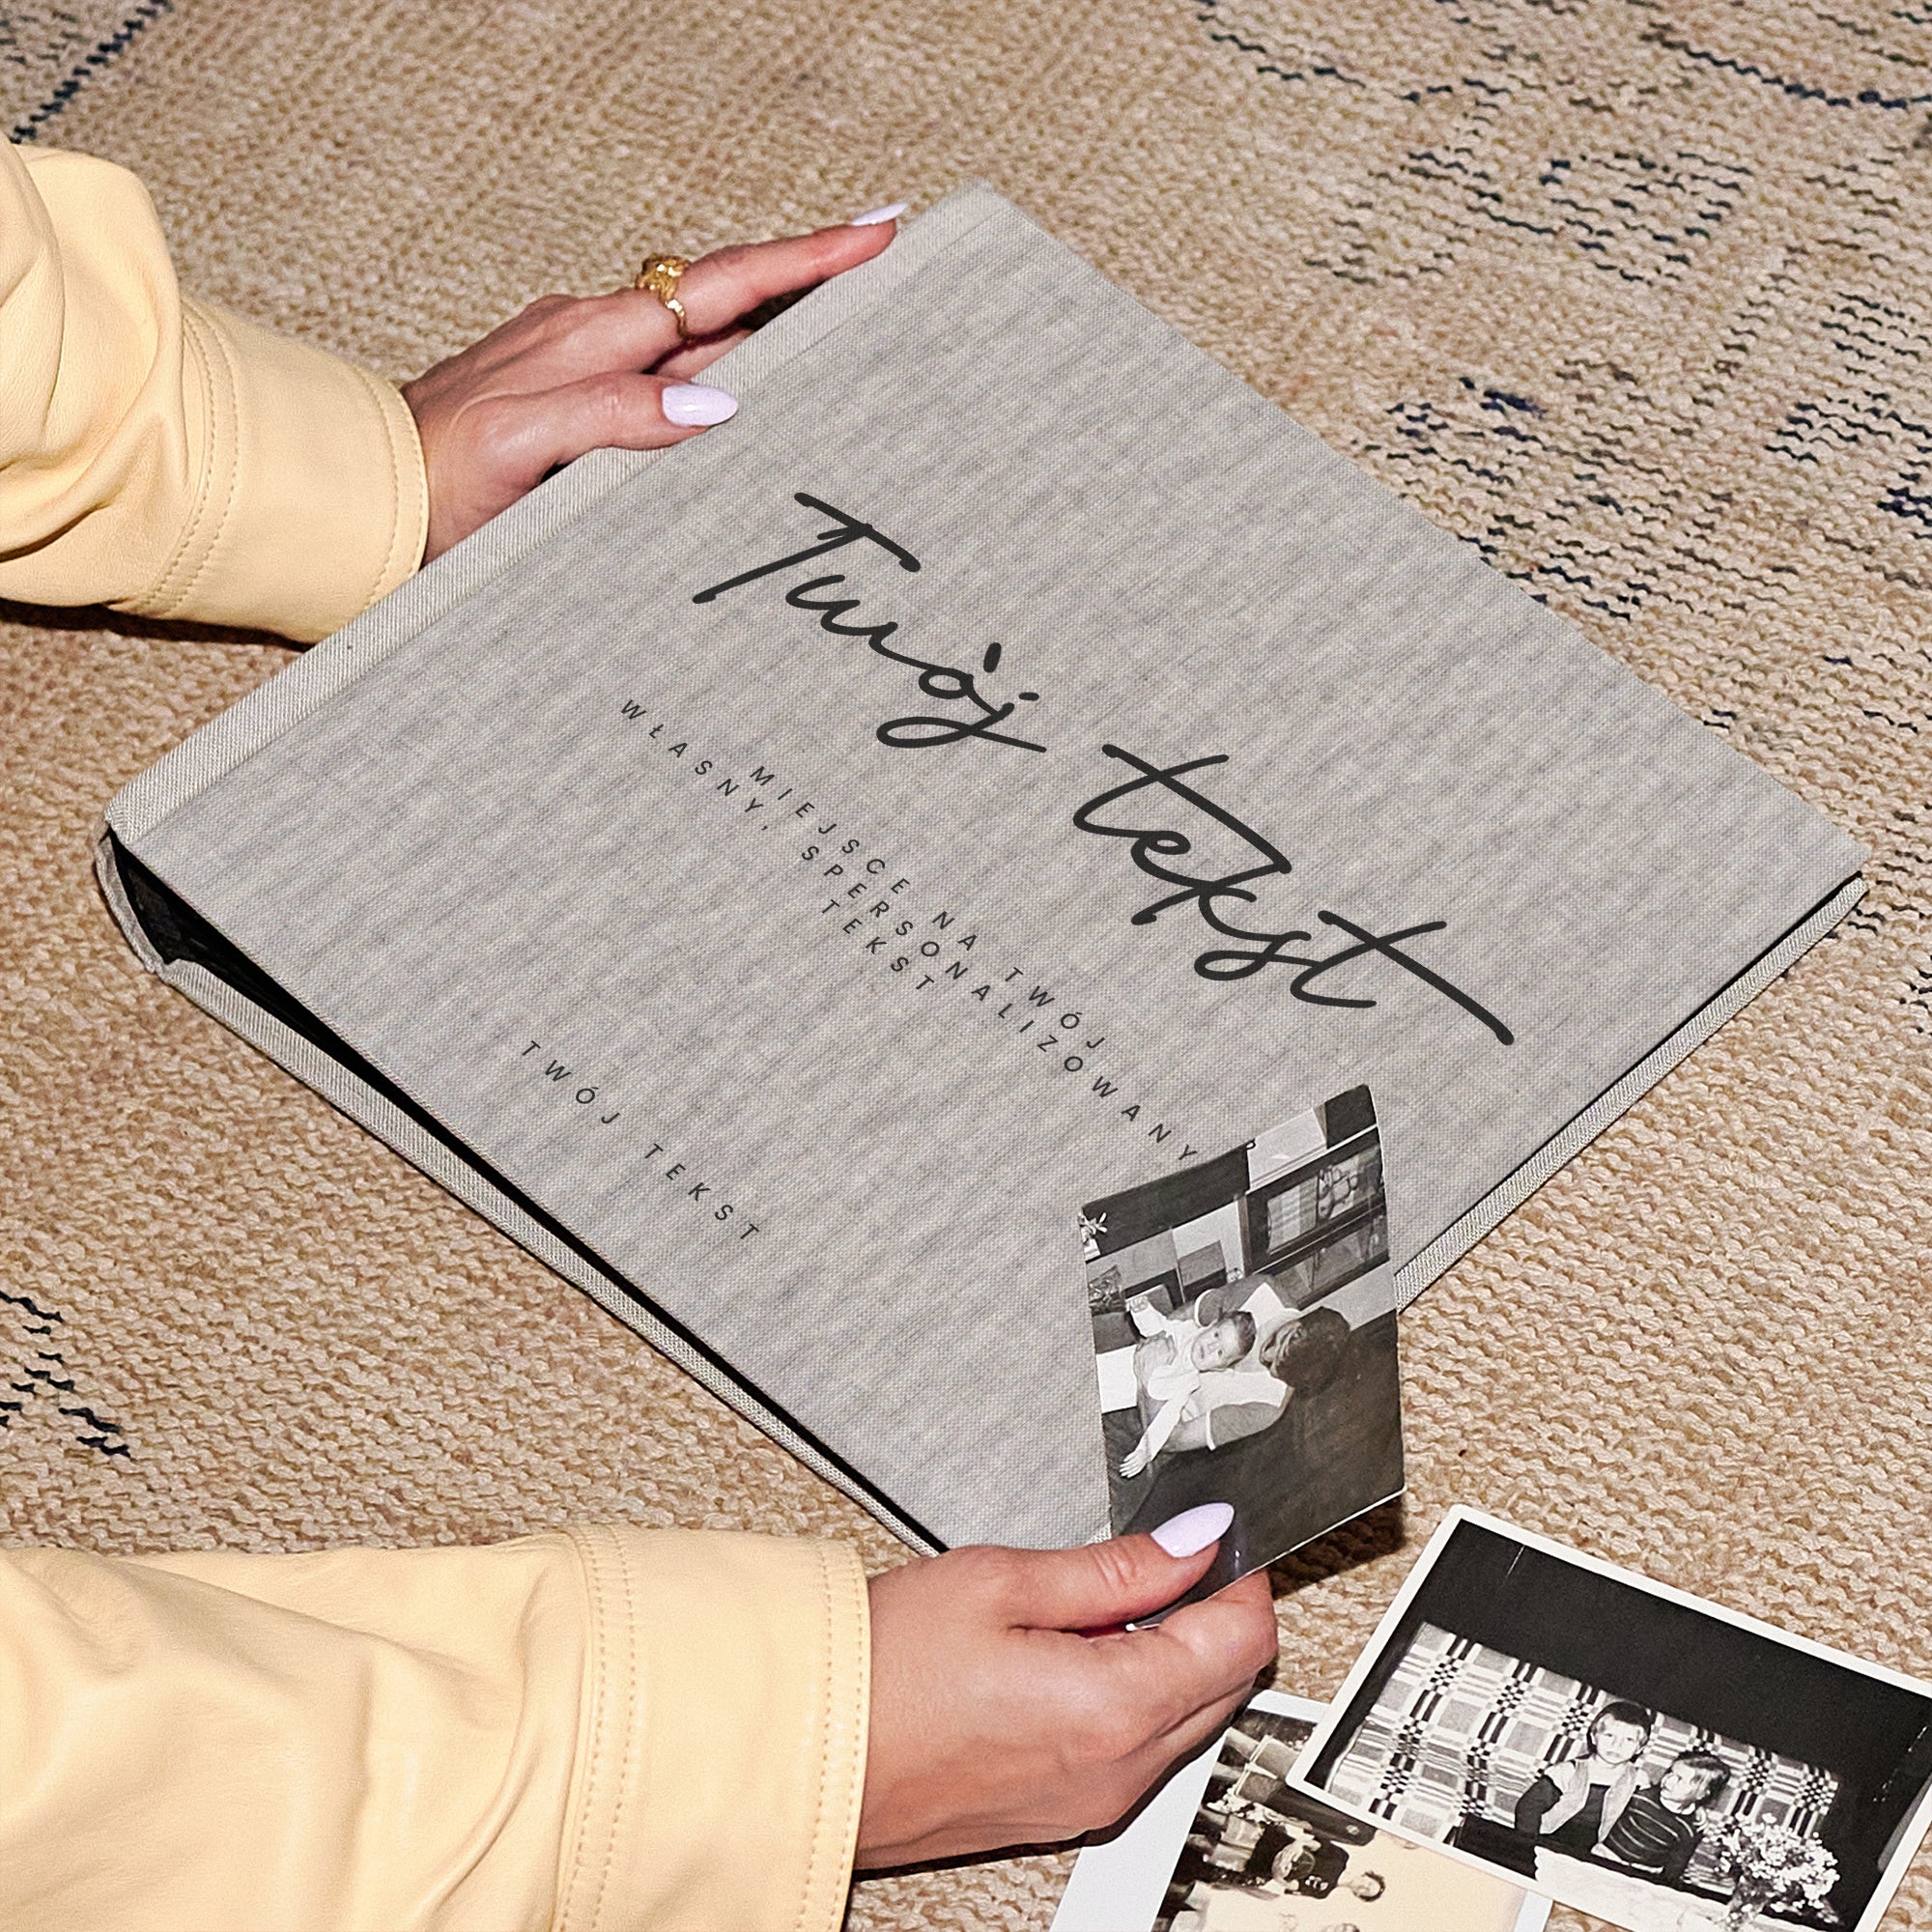 Twój tekst
MIEJSCE NA TWÓJ
WŁASNY, SPERSONALIZOWANY
TEKST
TWÓJ TEKST